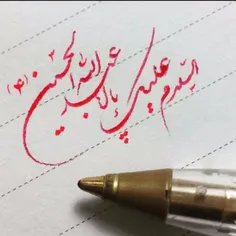 السلام علیک یا اباعبدالله الحسین (ع)